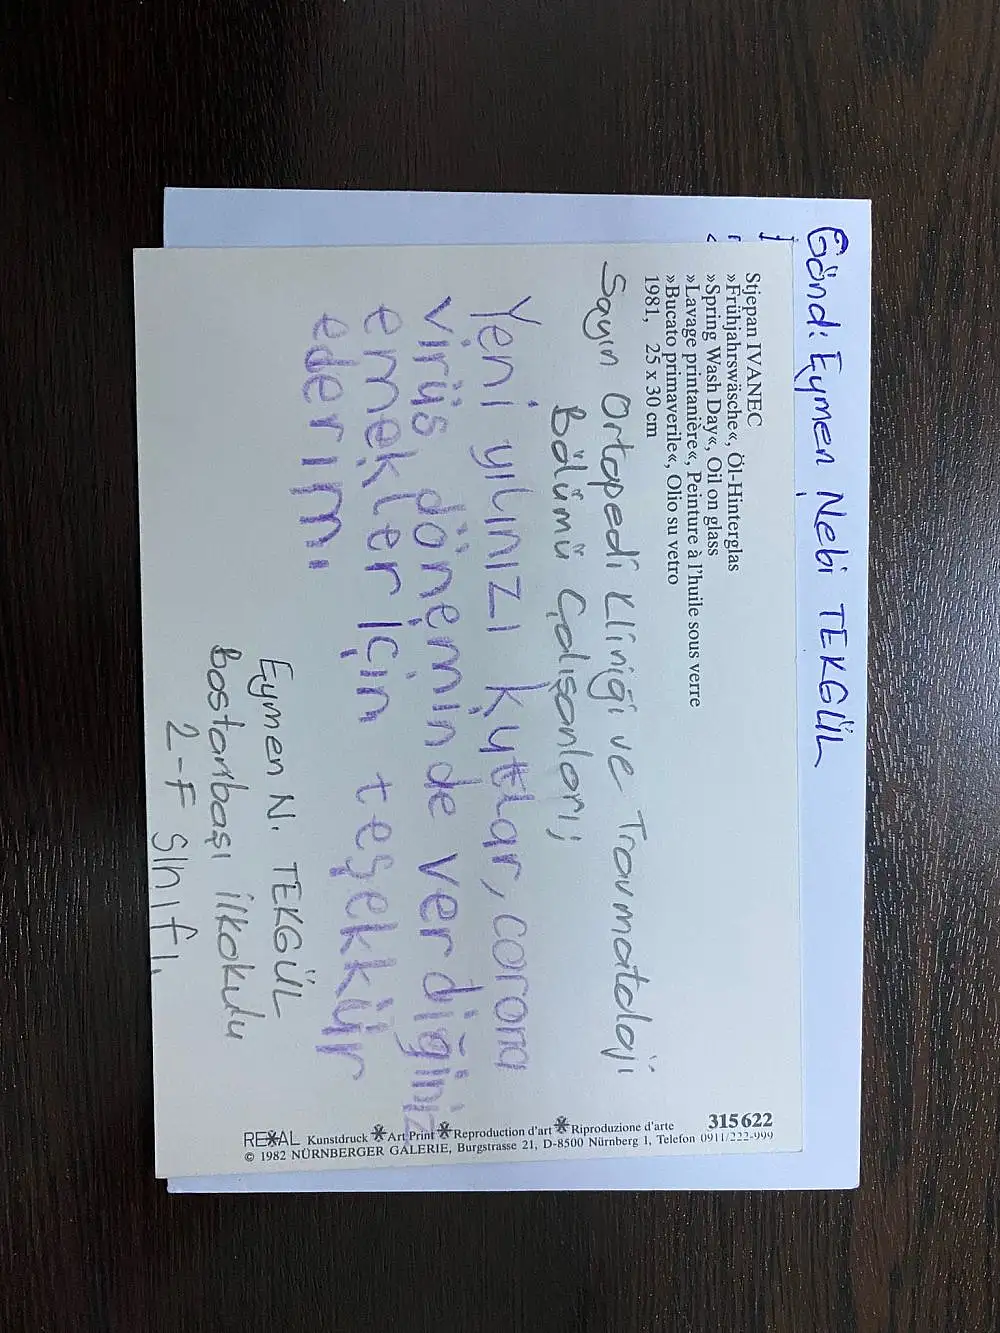 Gönd: Eymen Nebi TEKGÜL
Stjepan IVANEC
»Frühjahrswäsche«, Öl-Hinterglas
»Spring Wash Day«, Oil on glass
»Lavage printanière«, Peinture à l'huile sous verre
»Bucato primaverile«, Olio su vetro
1981, 25 x 30 cm
Sayın Ortopedi Kliniği ve Travmatoloji
Bölümü Çalışanları;
Yeni yılınızı kutlar, corona
virüs döneminde verdiğiniz
emekler için teşekkür
ederim.
Eymen N. TEKGÜL
Bostanbaşı ilkokulu
2-F sınıfı.
315622
REXAL Kunstdruck Art Print Reproduction d'art Riproduzione d'arte
© 1982 NÜRNBERGER GALERIE, Burgstrasse 21, D-8500 Nürnberg 1, Telefon 0911/222-999